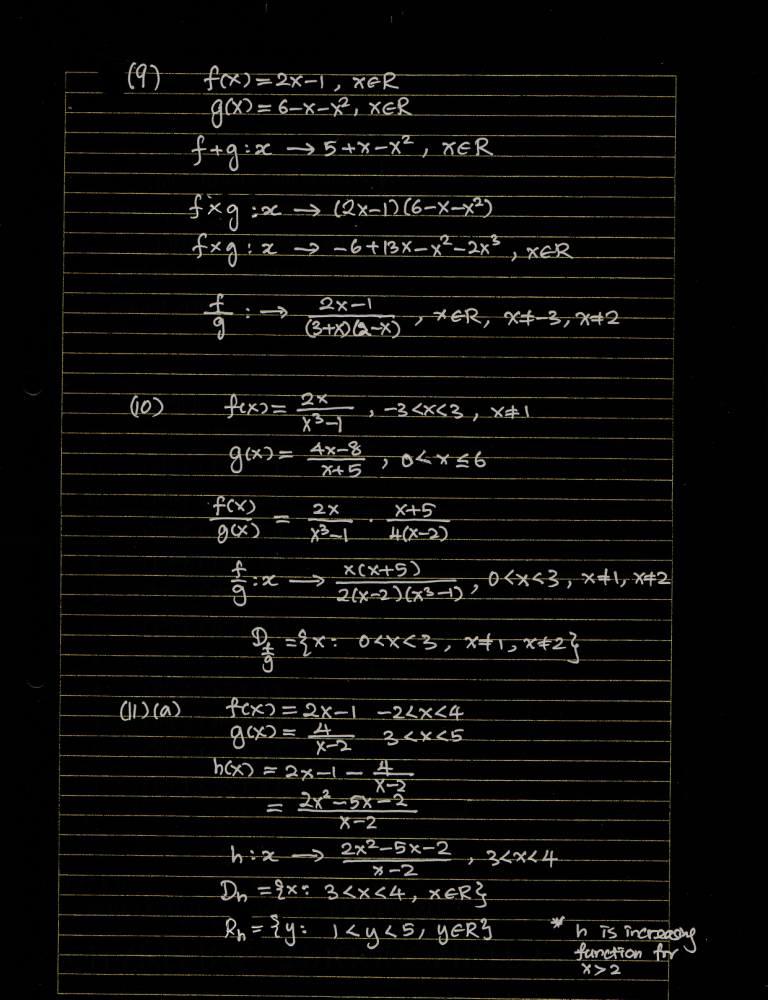 (9) f(x) = 2x-1 , x∈R
g(x) = 6-x-x², x∈R
f+g : x → 5+x-x² , x∈R
f×g : x → (2x-1)(6-x-x²)
f×g : x → -6+13x-x²-2x³ , x∈R
f/g : → (2x-1)/((3+x)(2-x)) , x∈R, x≠-3, x≠2
(10) f(x) = 2x/(x³-1) , -3<x<3 , x≠1
g(x) = (4x-8)/(x+5) , 0<x≤6
f(x)/g(x) = 2x/(x³-1) · (x+5)/(4(x-2))
f/g : x → x(x+5)/(2(x-2)(x³-1)) , 0<x<3, x≠1, x≠2
D f/g = {x: 0<x<3, x≠1, x≠2}
(11)(a) f(x) = 2x-1 -2<x<4
g(x) = 4/(x-2) 3<x<5
h(x) = 2x-1 - 4/(x-2)
= (2x²-5x-2)/(x-2)
h : x → (2x²-5x-2)/(x-2) , 3<x<4
Dh = {x: 3<x<4, x∈R}
Rh = {y: 1<y<5, y∈R} * h is increasing
function for
x>2